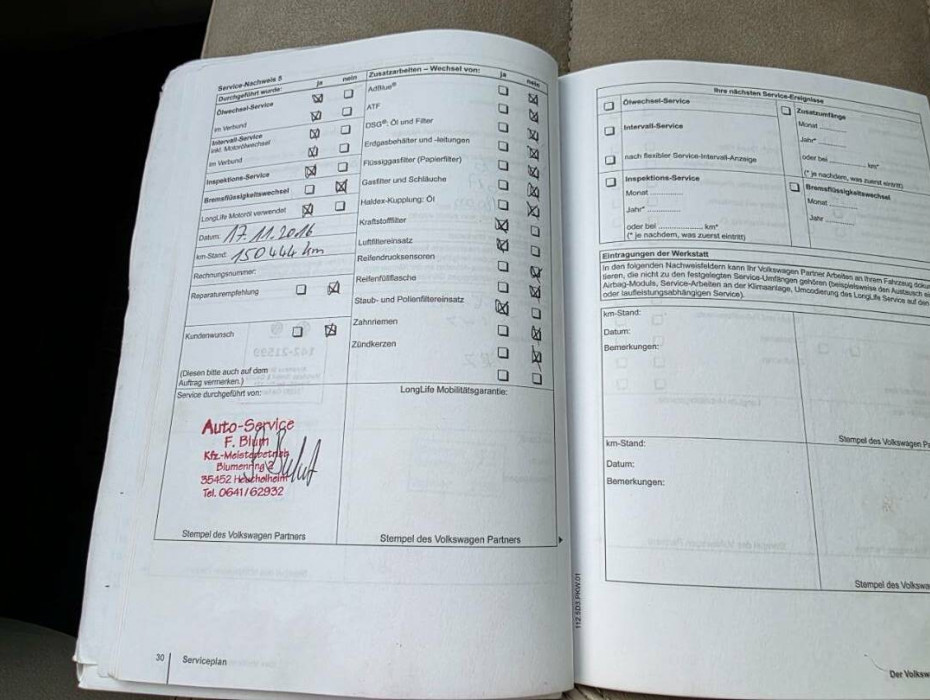 Service-Nachweis 5
Durchgeführt wurde: ja nein
Ölwechsel-Service
im Verbund
Intervall-Service
inkl. Motorölwechsel
im Verbund
Inspektions-Service
Bremsflüssigkeitswechsel
LongLife Motoröl verwendet
Datum: 17.11.2016
km-Stand: 150444 km
Rechnungsnummer:
Reparaturempfehlung
Kundenwunsch
(Diesen bitte auch auf dem
Auftrag vermerken.)
Service durchgeführt von:
Auto-Service
F. Blum
Kfz.-Meisterbetrieb
Blumenring 2
35452 Heuchelheim
Tel. 0641/62932
Stempel des Volkswagen Partners
Zusatzarbeiten – Wechsel von: ja nein
AdBlue®
ATF
DSG®: Öl und Filter
Erdgasbehälter und -leitungen
Flüssiggasfilter (Papierfilter)
Gasfilter und Schläuche
Haldex-Kupplung: Öl
Kraftstofffilter
Luftfiltereinsatz
Reifendrucksensoren
Reifenfüllflasche
Staub- und Pollenfiltereinsatz
Zahnriemen
Zündkerzen
LongLife Mobilitätsgarantie:
Stempel des Volkswagen Partners
30 Serviceplan
Ihre nächsten Service-Ereignisse
Ölwechsel-Service
Intervall-Service
nach flexibler Service-Intervall-Anzeige
Inspektions-Service
Monat
Jahr*
oder bei km*
(* je nachdem, was zuerst eintritt)
Zusatzumfänge
Monat
Jahr*
oder bei km*
(* je nachdem, was zuerst eintritt)
Bremsflüssigkeitswechsel
Monat
Jahr
Eintragungen der Werkstatt
In den folgenden Nachweisfeldern kann Ihr Volkswagen Partner Arbeiten an Ihrem Fahrzeug doku
tieren, die nicht zu den festgelegten Service-Umfängen gehören (beispielsweise den Austausch e
Airbag-Moduls, Service-Arbeiten an der Klimaanlage, Umcodierung des LongLife Service auf den
oder laufleistungsabhängigen Service).
km-Stand:
Datum:
Bemerkungen:
Stempel des Volkswagen P
km-Stand:
Datum:
Bemerkungen:
Stempel des Volkswa
112.5D3.PKW.01
Der Volksw